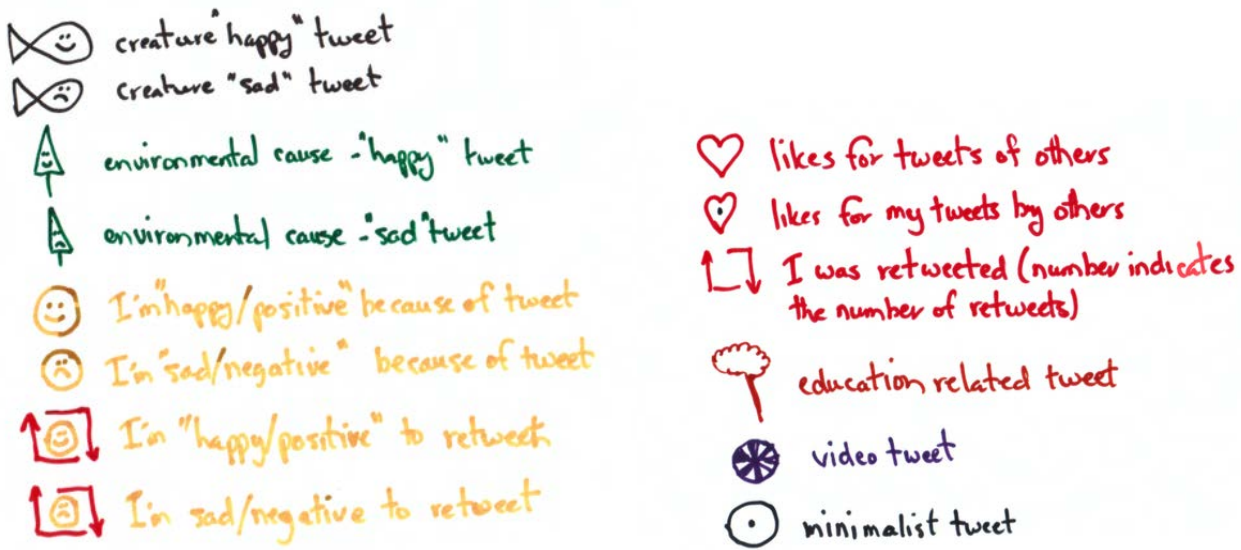 creature "happy" tweet
creature "sad" tweet
environmental cause - "happy" tweet
environmental cause - "sad" tweet
I'm "happy/positive" because of tweet
I'm "sad/negative" because of tweet
I'm "happy/positive" to retweet
I'm sad/negative to retweet
likes for tweets of others
likes for my tweets by others
I was retweeted (number indicates
the number of retweets)
education related tweet
video tweet
minimalist tweet